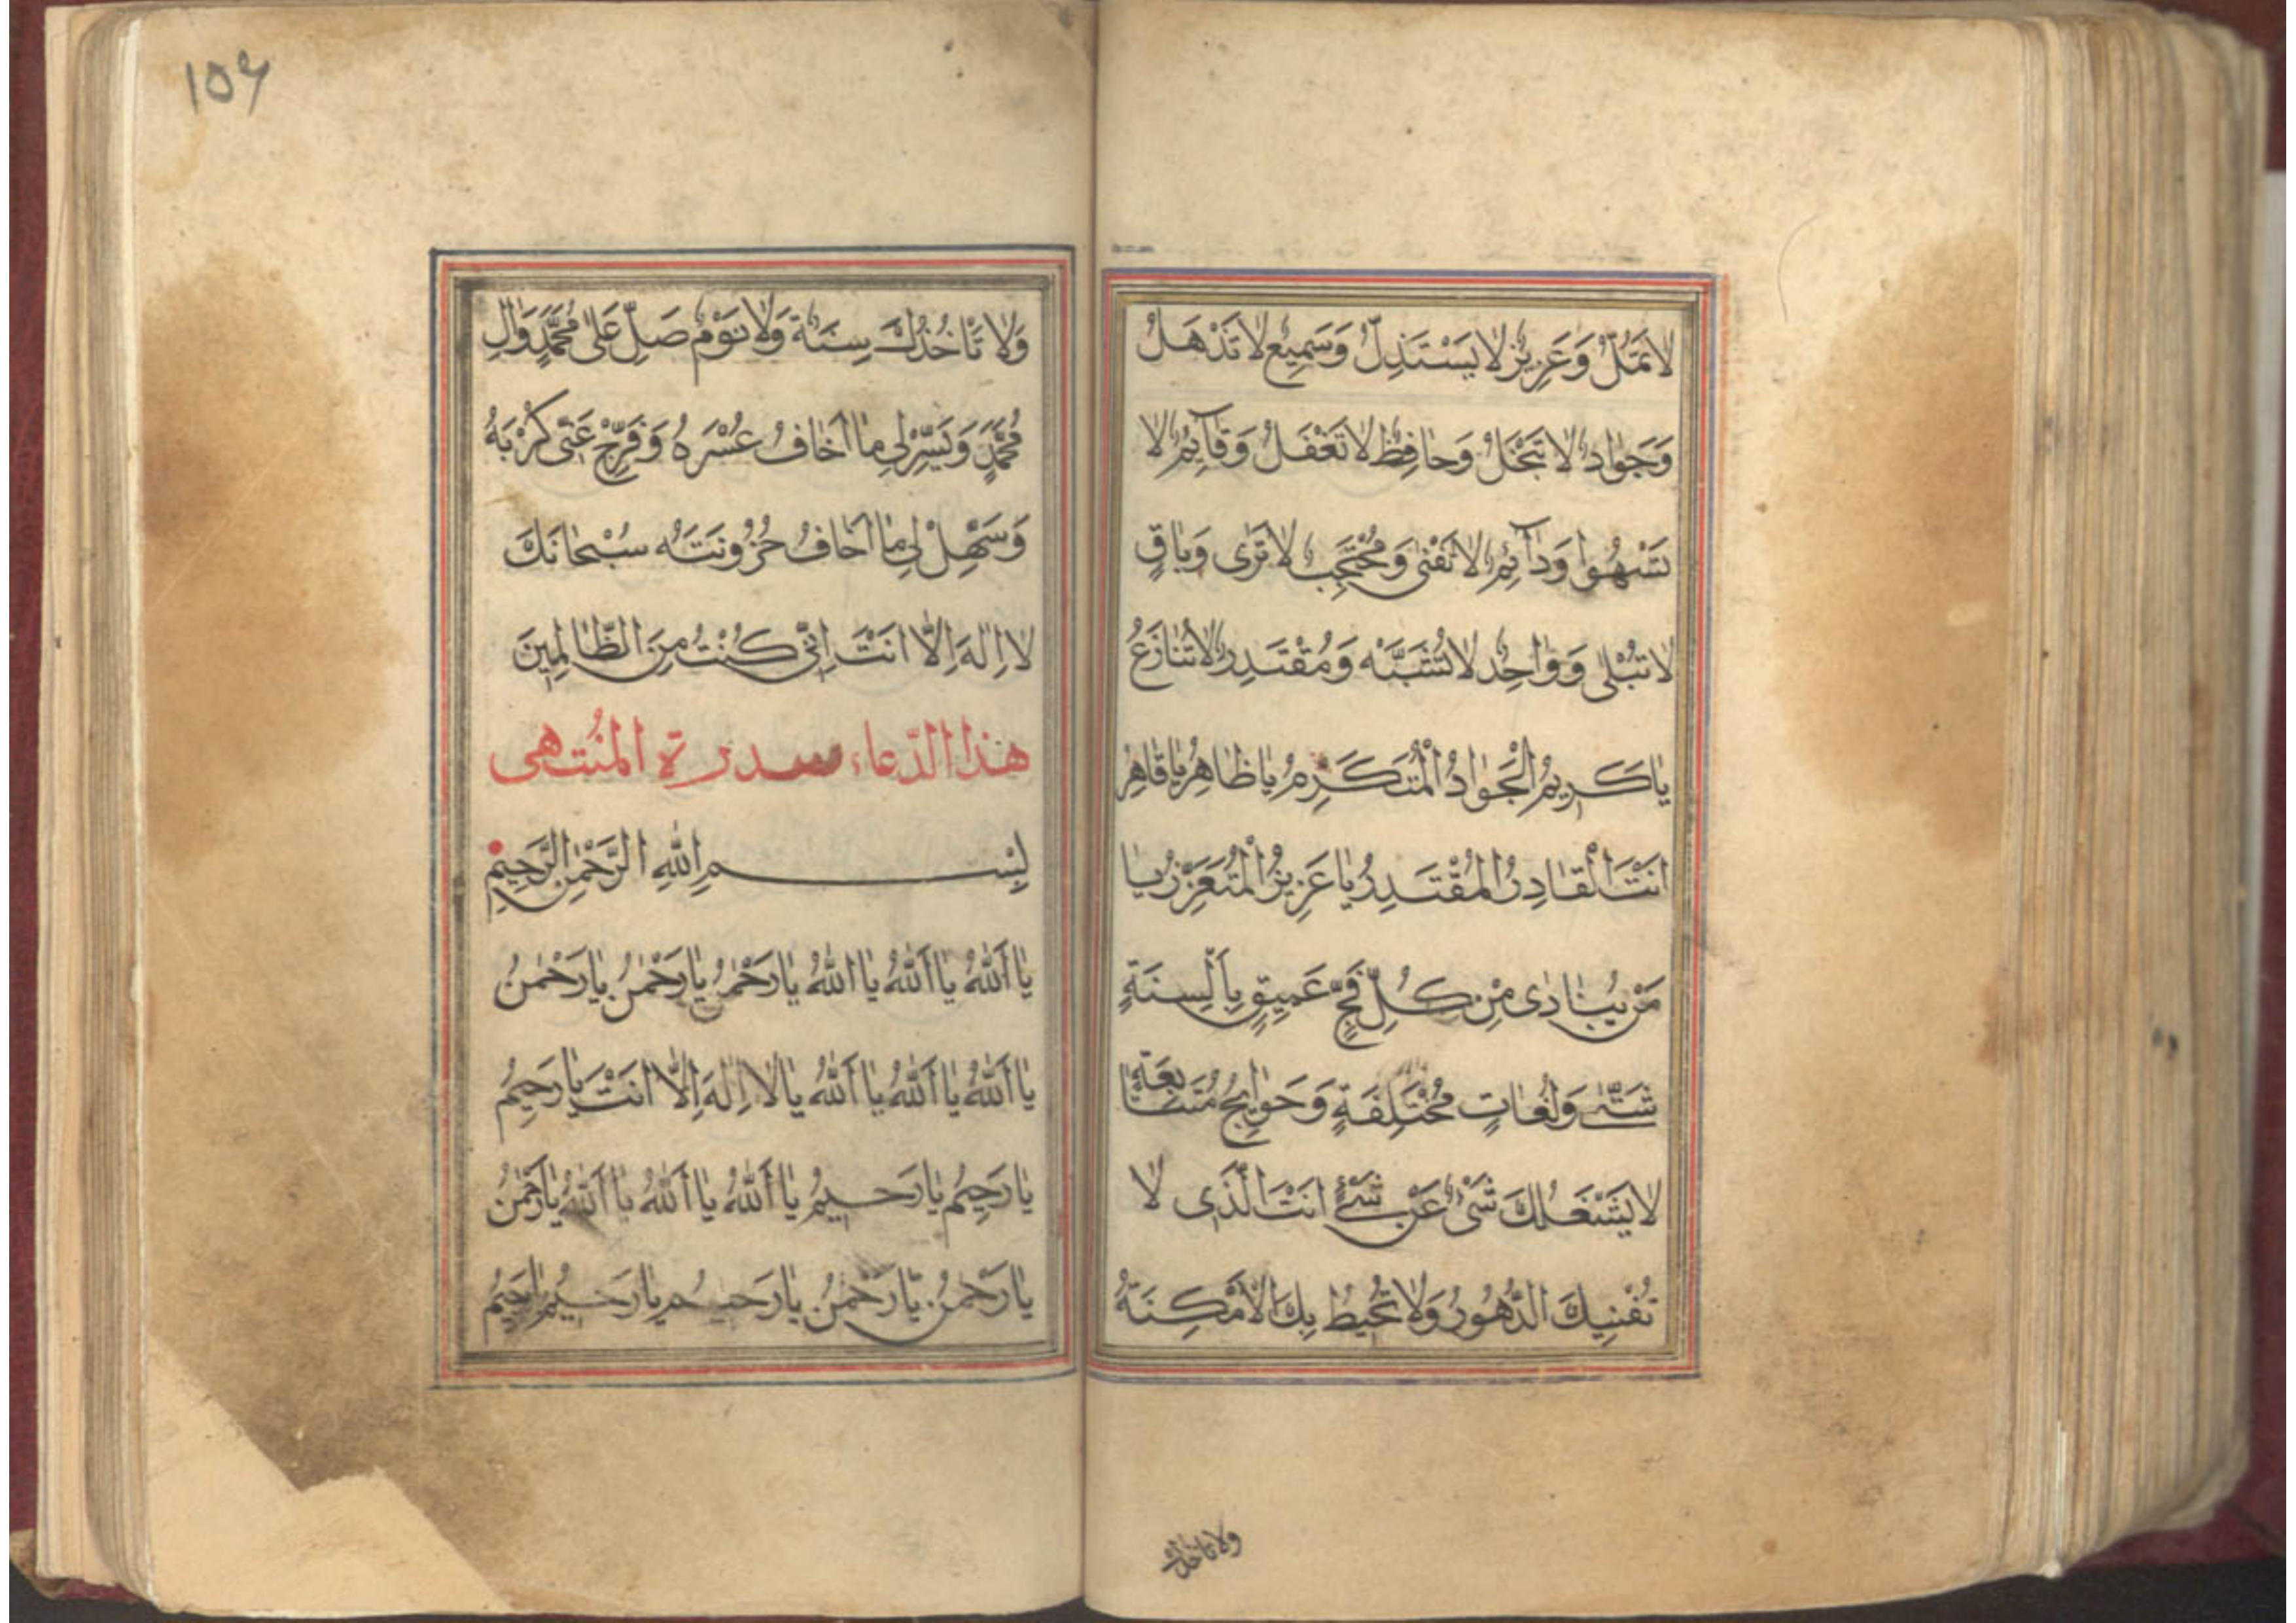 لَا تَمَلُّ وَعَزِيزٌ لَا يَسْتَذِلُّ وَسَمِيعٌ لَا تَذْهَلُ
وَجَوَادٌ لَا تَبْخَلُ وَحَافِظٌ لَا تَغْفَلُ وَقَآئِمٌ لَا
تَسْهُوا وَدَآئِمٌ لَا تَفْنٰى وَمُحْتَجِبٌ لَا تَرٰى وَبَاقٍ
لَا تُبْلٰى وَوَاحِدٌ لَا تُشَبَّه وَمُقْتَدِرٌ لَا تُنَازَعُ
يَا كَرِيمُ الْجَوَادُ الْمُتَكَرِّمُ يَا ظَاهِرُ يَا قَاهِرُ
اَنْتَ الْقَادِرُ الْمُقْتَدِرُ يَا عَزِيزُ الْمُتَعَزِّزُ يَا
مَنْ يُنَادٰى مِنْ كُلِّ فَجٍّ عَمِيقٍ بِاَلْسِنَةٍ
شَتّٰى وَلُغَاتٍ مُخْتَلِفَةٍ وَحَوَائِجَ مُتَتَابِعَةٍ
لَا يَشْغَلُكَ شَىْءٌ عَنْ شَىْءٍ اَنْتَ الَّذِى لَا
تُفْنِيكَ الدُّهُورُ وَلَا تُحِيطُ بِكَ الْاَمْكِنَةُ
ولا تاخذك
١٥٤
وَلَا تَاْخُذُكَ سِنَةٌ وَلَا نَوْمٌ صَلِّ عَلٰى مُحَمَّدٍ وَاٰلِ
مُحَمَّدٍ وَيَسِّرْ لِى مَا اَخَافُ عُسْرَهُ وَفَرِّجْ عَنّٖى كُرْبَهُ
وَسَهِّلْ لِى مَا اَخَافُ حُزُونَتَهُ سُبْحَانَكَ
لَا اِلٰهَ اِلَّا اَنْتَ اِنّٖى كُنْتُ مِنَ الظَّالِمِينَ
هذا الدّعاء سدرة المُنتهى
بِسْمِ اللّٰهِ الرَّحْمٰنِ الرَّحِيمِ
يَا اَللّٰهُ يَا اَللّٰهُ يَا اَللّٰهُ يَا رَحْمٰنُ يَا رَحْمٰنُ يَا رَحْمٰنُ
يَا اَللّٰهُ يَا اَللّٰهُ يَا اَللّٰهُ يَا لَا اِلٰهَ اِلَّا اَنْتَ يَا رَحِيمُ
يَا رَحِيمُ يَا رَحِيمُ يَا اَللّٰهُ يَا اَللّٰهُ يَا اَللّٰهُ يَا رَحْمٰنُ
يَا رَحْمٰنُ يَا رَحْمٰنُ يَا رَحِيمُ يَا رَحِيمُ يَا رَحِيمُ